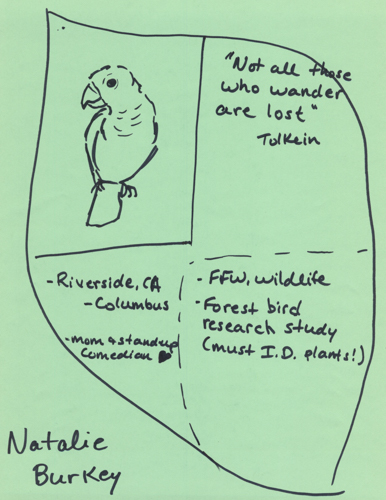 "Not all those
who wander
are lost"
Tolkein
- Riverside, CA
- Columbus
- mom & standup
comedian ♥
- FFW, wildlife
- Forest bird
research study
(must I.D. plants!)
Natalie
Burkey